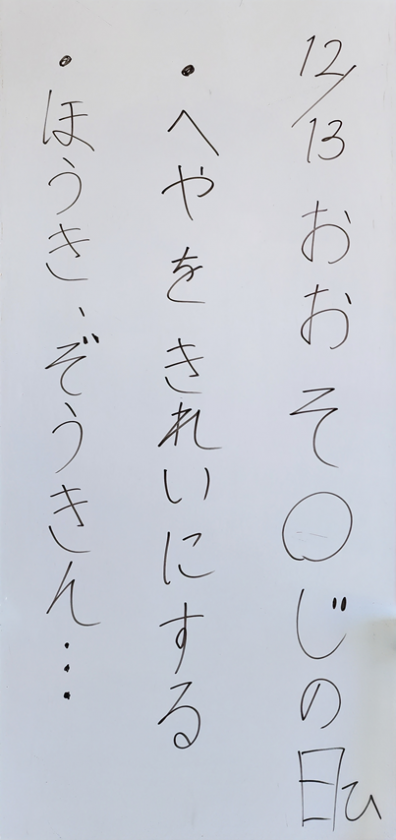 12/13 おおそ○じの日ひ
・へやをきれいにする
・ほうき、ぞうきん…